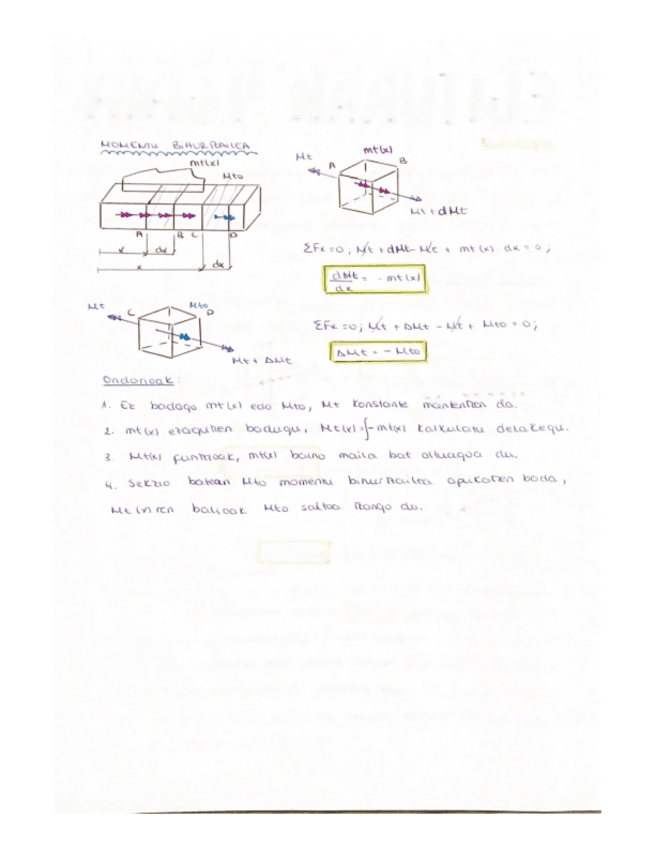 MOMENTU BIHURTZAILEA
mt(x)
Mto
A B C D
x dx
x dx
Mt
A
mt(x)
B
Mt + dMt
ΣFx = 0 ; Mt + dMt - Mt + mt(x) · dx = 0 ;
dMt/dx = - mt(x)
Mt
C
Mto
D
Mt + ΔMt
ΣFx = 0 ; Mt + ΔMt - Mt + Mto = 0 ;
ΔMt = - Mto
Ondorioak :
1. Ez badago mt(x) edo Mto, Mt konstante mantentzen da.
2. mt(x) ezagutzen badugu, Mt(x) = ∫- mt(x) kalkulatu dezakegu.
3. Mt(x) funtzioak, mt(x) baino maila bat altuagoa du.
4. Sekzio batean Mto momentu bihurtzailea aplikatzen bada,
Mt(x)ren balioak Mto saltoa izango du.